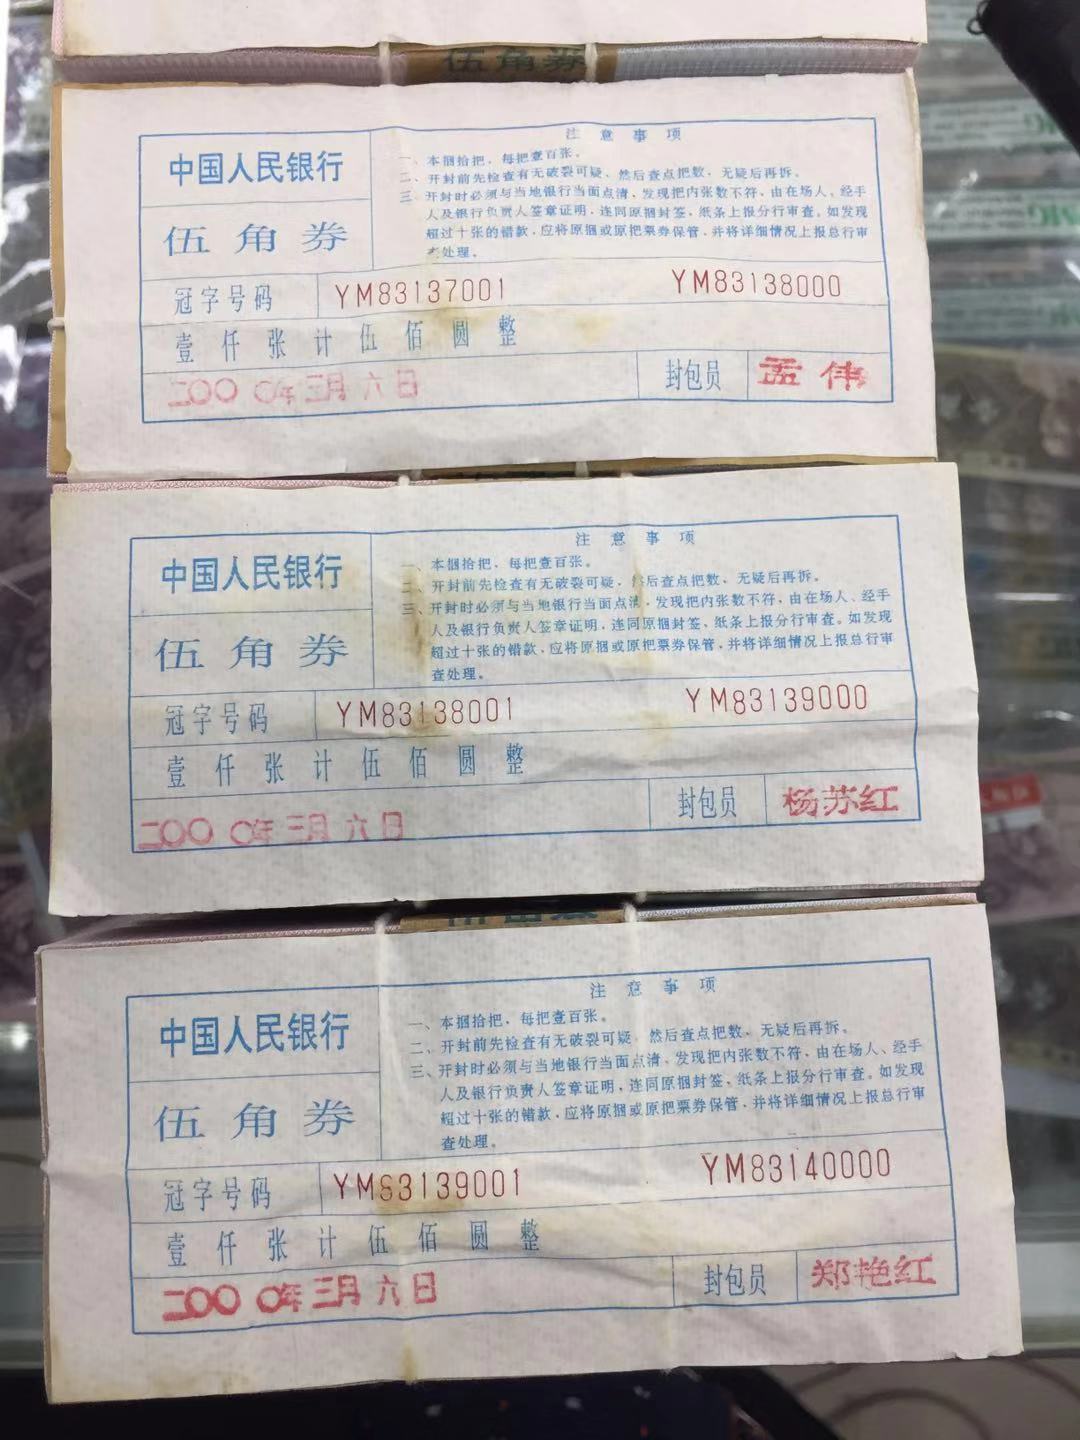 伍角券
中国人民银行
伍角券
注意事项
一、本捆拾把，每把壹百张。
二、开封前先检查有无破裂可疑，然后查点把数，无疑后再拆。
三、开封时必须与当地银行当面点清，发现把内张数不符，由在场人、经手
人及银行负责人签章证明，连同原捆封签，纸条上报分行审查。如发现
超过十张的错款，应将原捆或原把票券保管，并将详细情况上报总行审
查处理。
冠字号码 YM83137001 YM83138000
壹仟张计伍佰圆整
二〇〇〇年三月六日 封包员 孟伟
中国人民银行
伍角券
注意事项
一、本捆拾把，每把壹百张。
二、开封前先检查有无破裂可疑，然后查点把数，无疑后再拆。
三、开封时必须与当地银行当面点清，发现把内张数不符，由在场人、经手
人及银行负责人签章证明，连同原捆封签，纸条上报分行审查。如发现
超过十张的错款，应将原捆或原把票券保管，并将详细情况上报总行审
查处理。
冠字号码 YM83138001 YM83139000
壹仟张计伍佰圆整
二〇〇〇年三月六日 封包员 杨苏红
中国人民银行
伍角券
注意事项
一、本捆拾把，每把壹百张。
二、开封前先检查有无破裂可疑，然后查点把数，无疑后再拆。
三、开封时必须与当地银行当面点清，发现把内张数不符，由在场人、经手
人及银行负责人签章证明，连同原捆封签，纸条上报分行审查。如发现
超过十张的错款，应将原捆或原把票券保管，并将详细情况上报总行审
查处理。
冠字号码 YM83139001 YM83140000
壹仟张计伍佰圆整
二〇〇〇年三月六日 封包员 郑艳红